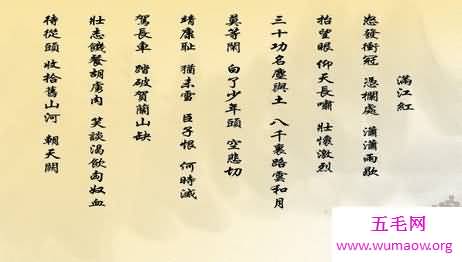 滿江紅
怒發衝冠 憑欄處 瀟瀟雨歇
抬望眼 仰天長嘯 壯懷激烈
三十功名塵與土 八千裏路雲和月
莫等閑 白了少年頭 空悲切
靖康恥 猶未雪 臣子恨 何時滅
駕長車 踏破賀蘭山缺
壯志饑餐胡虜肉 笑談渴飲匈奴血
待從頭 收拾舊山河 朝天闕
五毛网
www.wumaow.org